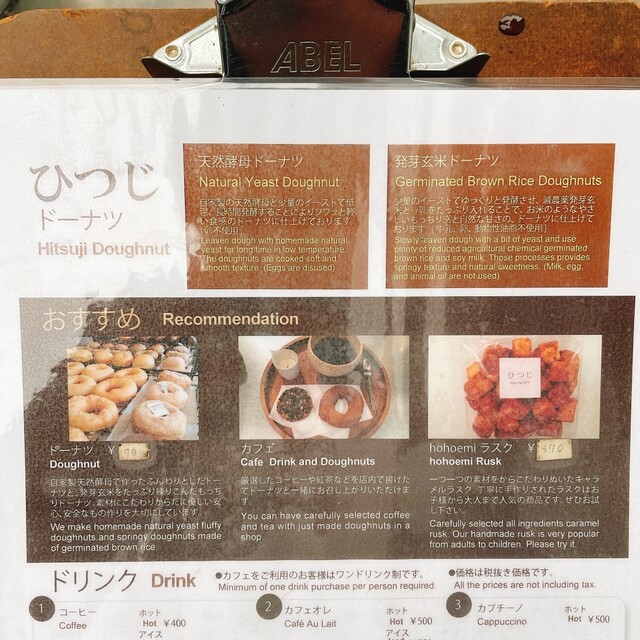 ABEL
ひつじ
ドーナツ
Hitsuji Doughnut
天然酵母ドーナツ
Natural Yeast Doughnut
自家製の天然酵母と少量のイーストで低
温、長時間発酵することによりフワッと軽
い食感のドーナツに仕上げております。
Leaven dough with homemade natural
yeast for long time in low temperature.
The doughnuts are cooked soft and
smooth texture. (Eggs are disused)
発芽玄米ドーナツ
Germinated Brown Rice Doughnuts
少量のイーストでゆっくりと発酵させ、減農薬発芽玄
米と豆乳をたっぷり入れることで、お米のようなやさ
しいもっちり感と自然な甘さの、ドーナツに仕上げて
おります。(牛乳、卵、動物性油脂不使用)
Slowly leaven dough with a bit of yeast and use
plenty of reduced agricultural chemical germinated
brown rice and soy milk. Those processes provides
springy texture and natural sweetness. (Milk, egg,
and animal oil are not used)
おすすめ Recommendation
ひつじ
ドーナツ ¥
Doughnut
自家製天然酵母で作ったふんわりとしたドー
ナツと、発芽玄米をたっぷり練りこんだもっち
りドーナツ。素材にこだわりからだに優しい安
心、安全なもの作りを大切にしています。
We make homemade natural yeast fluffy
doughnuts and springy doughnuts made
of germinated brown rice.
カフェ
Cafe Drink and Doughnuts
厳選したコーヒーや紅茶などを店内で揚げた
てドーナツと一緒にお召し上がりいただけま
す。
You can have carefully selected coffee
and tea with just made doughnuts in a
shop.
hohoemi ラスク ¥
hohoemi Rusk
一つ一つの素材をからこだわりぬいたキャラ
メルラスク。丁寧に手作りされたラスクはお
子様から大人まで人気の商品です。ぜひお試
し下さい
Carefully selected all ingredients caramel
rusk. Our handmade rusk is very popular
from adults to children. Please try it.
ドリンク Drink
●カフェをご利用のお客様はワンドリンク制です。
Minimum of one drink purchase per person required.
●価格は税抜き価格です。
All the prices are not including tax.
1 コーヒー ホット
Coffee Hot ¥400
アイス
2 カフェオレ ホット
Café Au Lait Hot ¥500
アイス
3 カプチーノ ホット
Cappuccino Hot ¥500